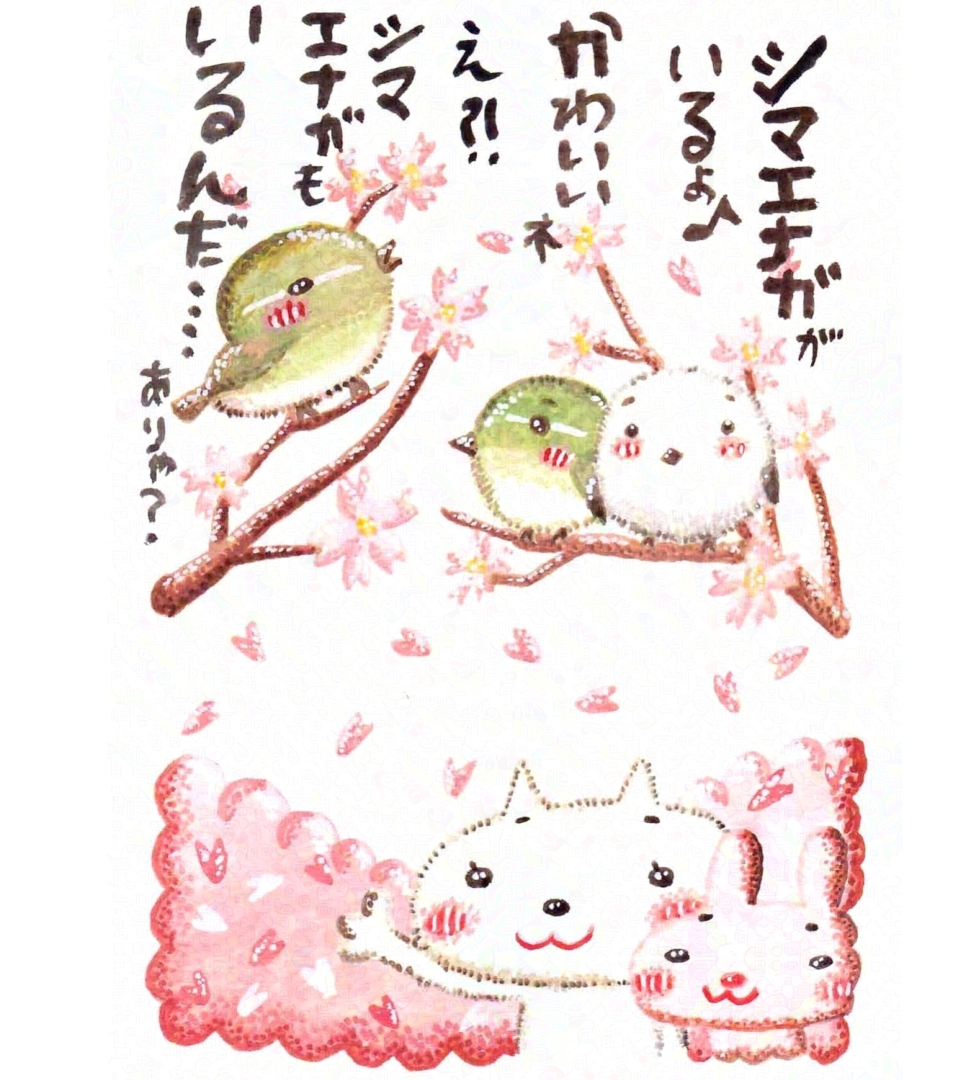 シマエナガが
いるよ♪
かわいいネ
え?!
シマ
エナガも
いるんだ……
ありゃ?